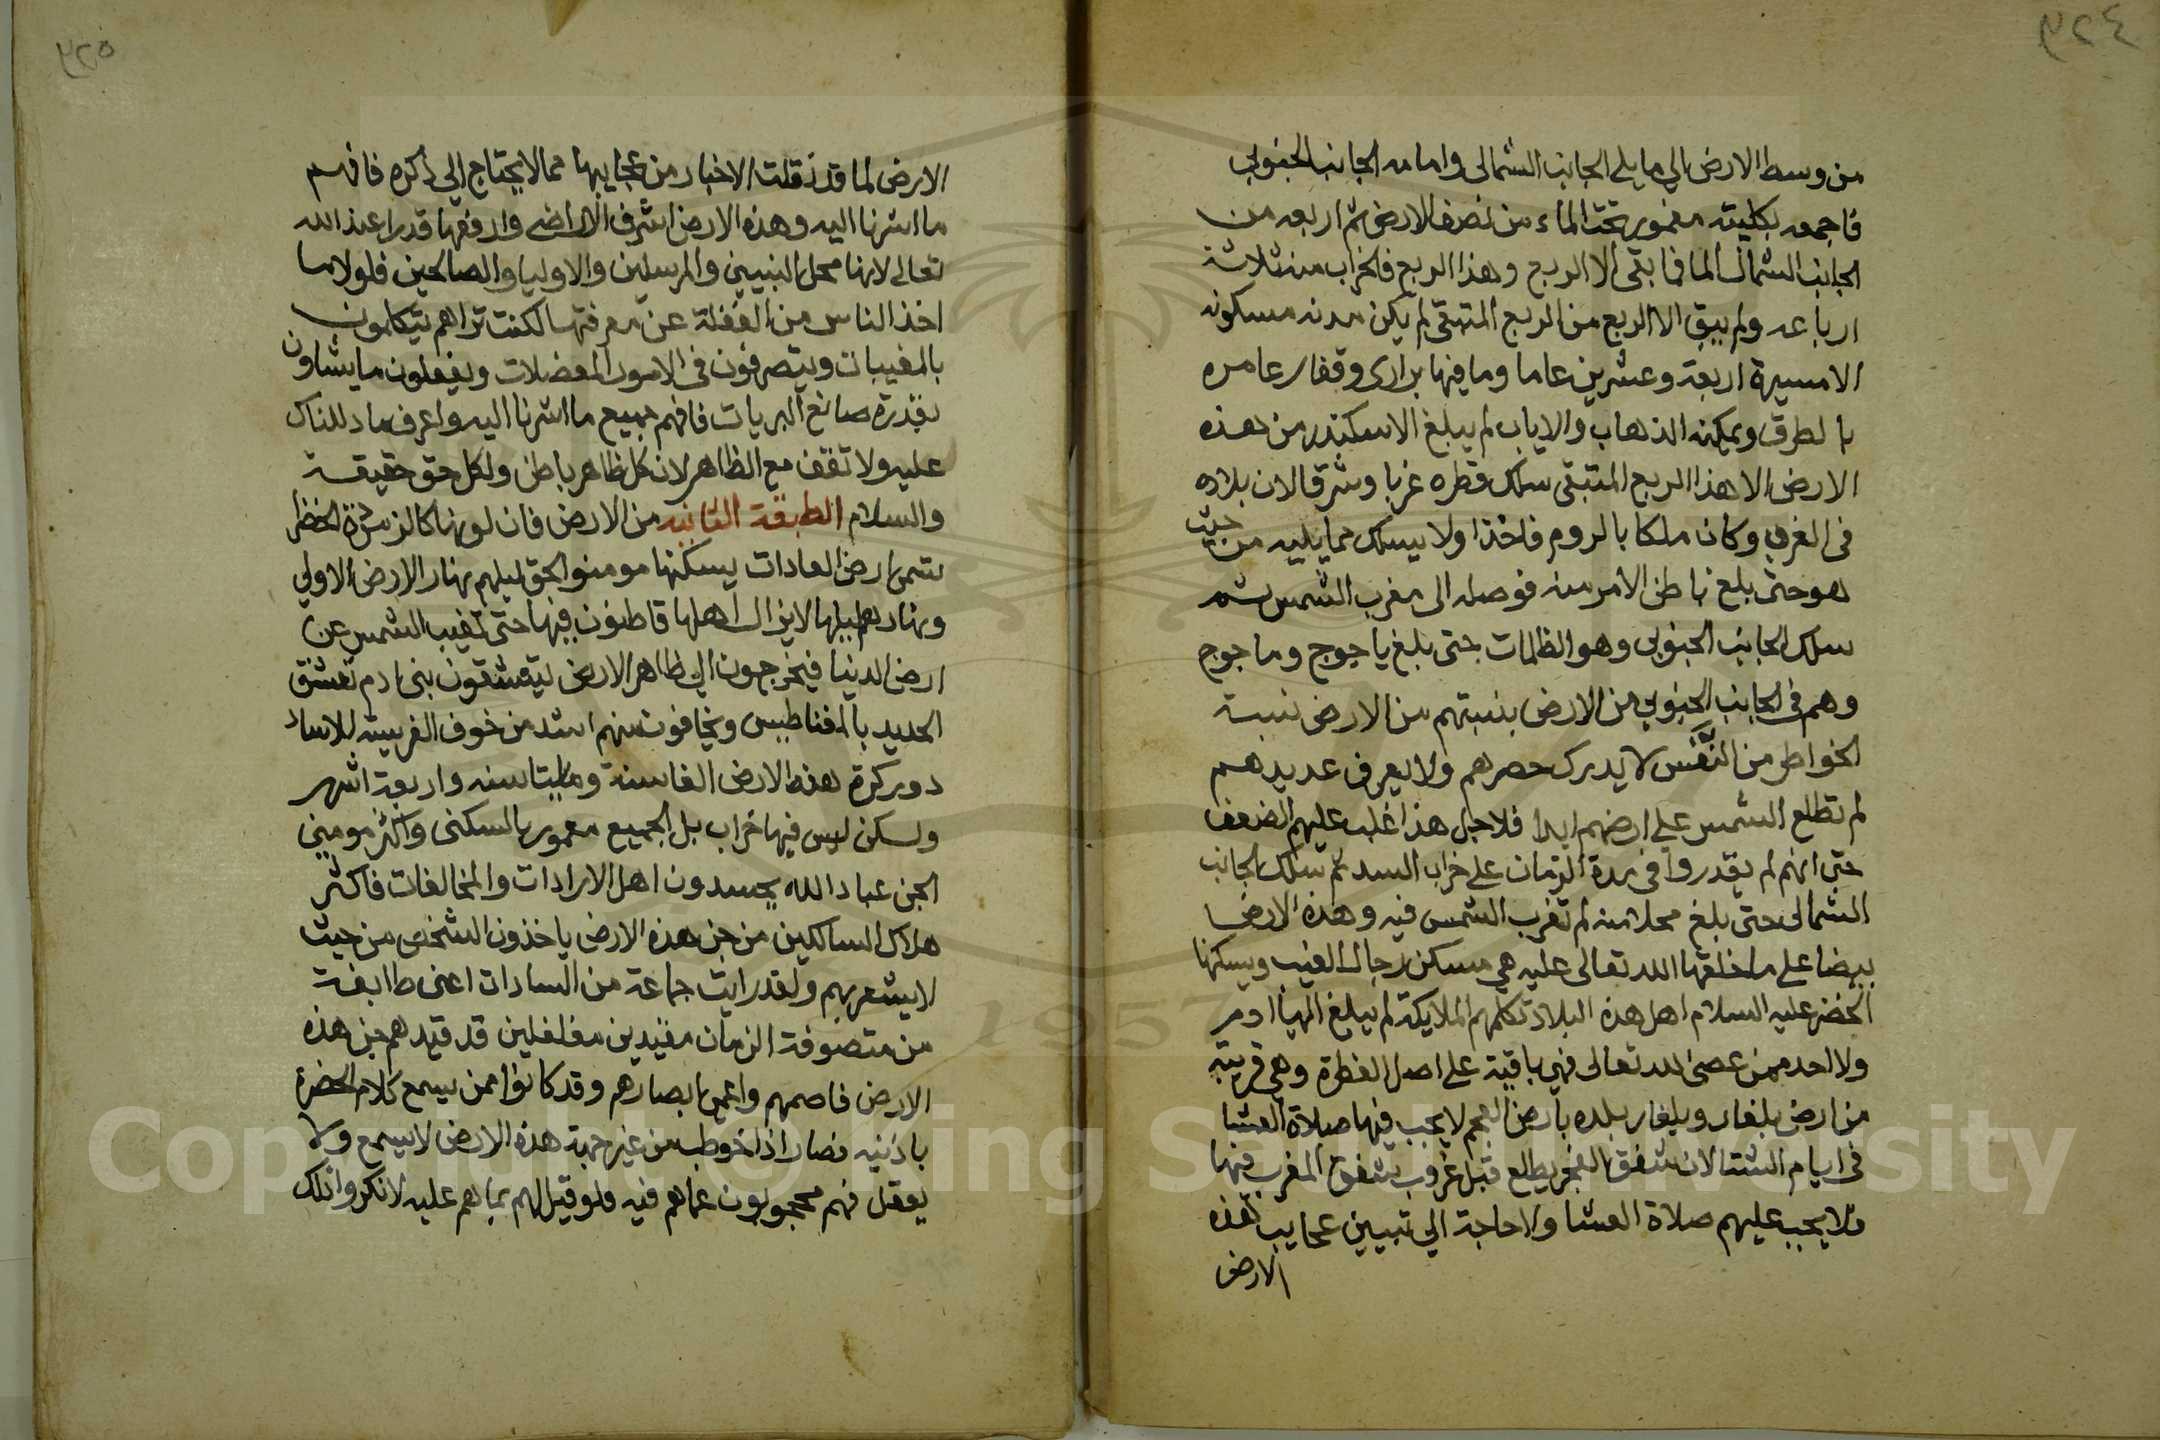 ٣٢٤
من وسط الارض الي ما يلي الجانب الشمالى واما مه الجانب الجنوبي
فاجمعه بكليته مغمور تحت الماء من نصف الارض ثم اربعه من
الجانب الشمال الما فما بقى الا الربع وهذا الربع فالخراب منه ثلاثة
ارباعه ولم يبق الا الربع من الربع المتبقى لم يكن مدنه مسكونه
الا مسيرة اربعة وعشرين عاما وما فيها برارى وقفار عامره
بالطرق ويمكنه الذهاب والاياب لم يبلغ الاسكندر من هذه
الارض الا هذا الربع المتبقى سلك قطره غربا وشرقا لان بلاده
فى الغرب وكان ملكا بالروم فاخذ اولا يسلك مما يليه من حيث
هو حتى بلغ باطن الامر منه فوصله الى مغرب الشمس ثم
سلك الجانب الجنوبي وهو الظلمات حتى بلغ ياجوج وماجوج
وهم فى الجانب الجنوبي من الارض بنسبتهم من الارض نسبة
الخواطر من النَّفس لا يدرك حصرهم ولا يعرف عديدهم
لم تطلع الشمس على ارضهم ابدا فلاجل هذا غلب عليهم الضعف
حتى انهم لم يقدروا فى مدة الزمان على خراب السد ثم سلك الجانب
الشمالى حتى بلغ محلا منه لم تغرب الشمس فيه وهذه الارض
بيضا على ما خلقها الله تعالى عليه هي مسكن رجال الغيب ويسكنها
الخضر عليه السلام اهل هذه البلاد تكلمهم الملايكة لم يبلغ اليها ادم
ولا احد ممن عصى الله تعالى فهي باقية على اصل الفطرة وهي قريبة
من ارض بلغار وبلغار بلده بارض العجم لا يجب فيها صلاة العشا
فى ايام الشتا لان شفق الفجر يطلع قبل غروب شفق المغرب فيها
فلا يجب عليهم صلاة العشا ولا حاجة الي تبيين عجايب هذه
الارض
٣٢٥
الارض لما قد نقلت الاخبار من عجايبها مما لا يحتاج الي ذكره فافهم
ما اشرنا اليه وهذه الارض اشرف الاراضى وارفعها قدرا عند الله
تعالى لانها محل النبيين والمرسلين والاوليا والصالحين فلولا ما
اخذ الناس من الغفلة عن معرفتها لكنت تراهم يتكلمون
بالمغيبات ويتصرفون فى الامور المعضلات ويفعلون ما يشاون
بقدرة صانع البريات فافهم جميع ما اشرنا اليه واعرف ما دللناك
عليه ولا تقف مع الظاهر لان كل ظاهر باطن ولكل حق حقيقة
والسلام الطبقة الثانيه من الارض فان لونها كالزمردة الخضرا
تسمى ارض العادات يسكنها مومنوا الجن ليلهم نهار الارض الاولي
ونهارهم ليلها لا يزال اهلها قاطنون فيها حتى تغيب الشمس عن
ارض الدنيا فيخرجون الى ظاهر الارض يتعشقون بنى ادم تعشق
الحديد بالمغناطيس ويخافون منهم اشد من خوف الفريسة للاساد
دور كرة هذه الارض الفا سنة ومايتا سنه واربعة اشهر
ولكن ليس فيها خراب بل الجميع معمور بالسكنى واكثر مومني
الجن عباد الله يحسدون اهل الارادات والمخالفات فاكثر
هلاك السالكين من جن هذه الارض ياخذون الشخص من حيث
لا يشعر بهم ولقد رايت جماعة من السادات اعنى طايفة
من متصوفة الزمان مقيدين مغلغلين قد قيدهم جن هذه
الارض فاصمهم واعمى ابصارهم وقد كانوا ممن يسمع كلام الحضرة
باذنيه فصار اذا خوطب من غير جهة هذه الارض لا يسمع ولا
يعقل فهم محجوبون عماهم فيه فلو قيل لهم بما هم عليه لانكروا ذلك